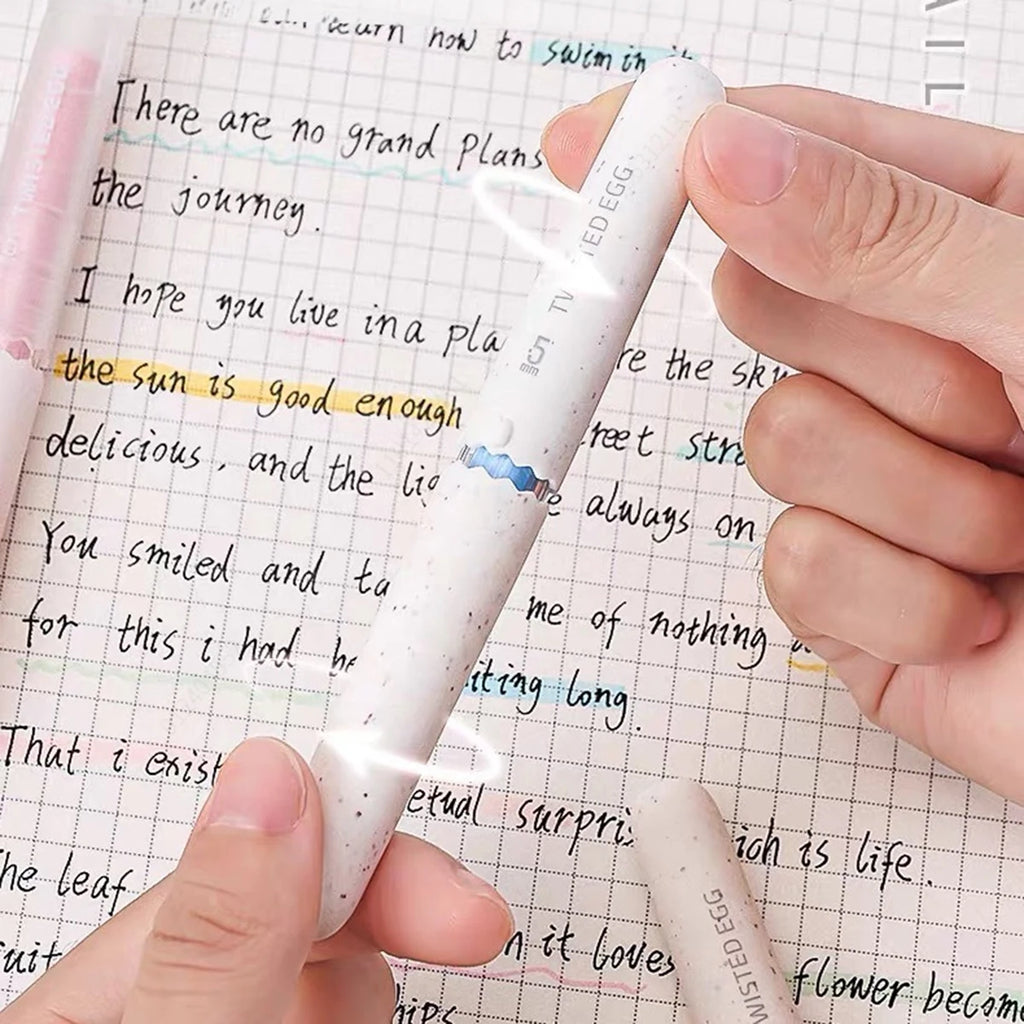 learn how to swim in it
There are no grand plans
the journey.
I hope you live in a pla re the sky
the sun is good enough reet stre
delicious, and the lig e always on
You smiled and ta me of nothing a
for this i had be iting long.
That i exist etual surpris ich is life.
The leaf n it loves flower become
uit
hips
TWISTED EGG
5mm
TWISTED EGG
WISTED EGG
AIL